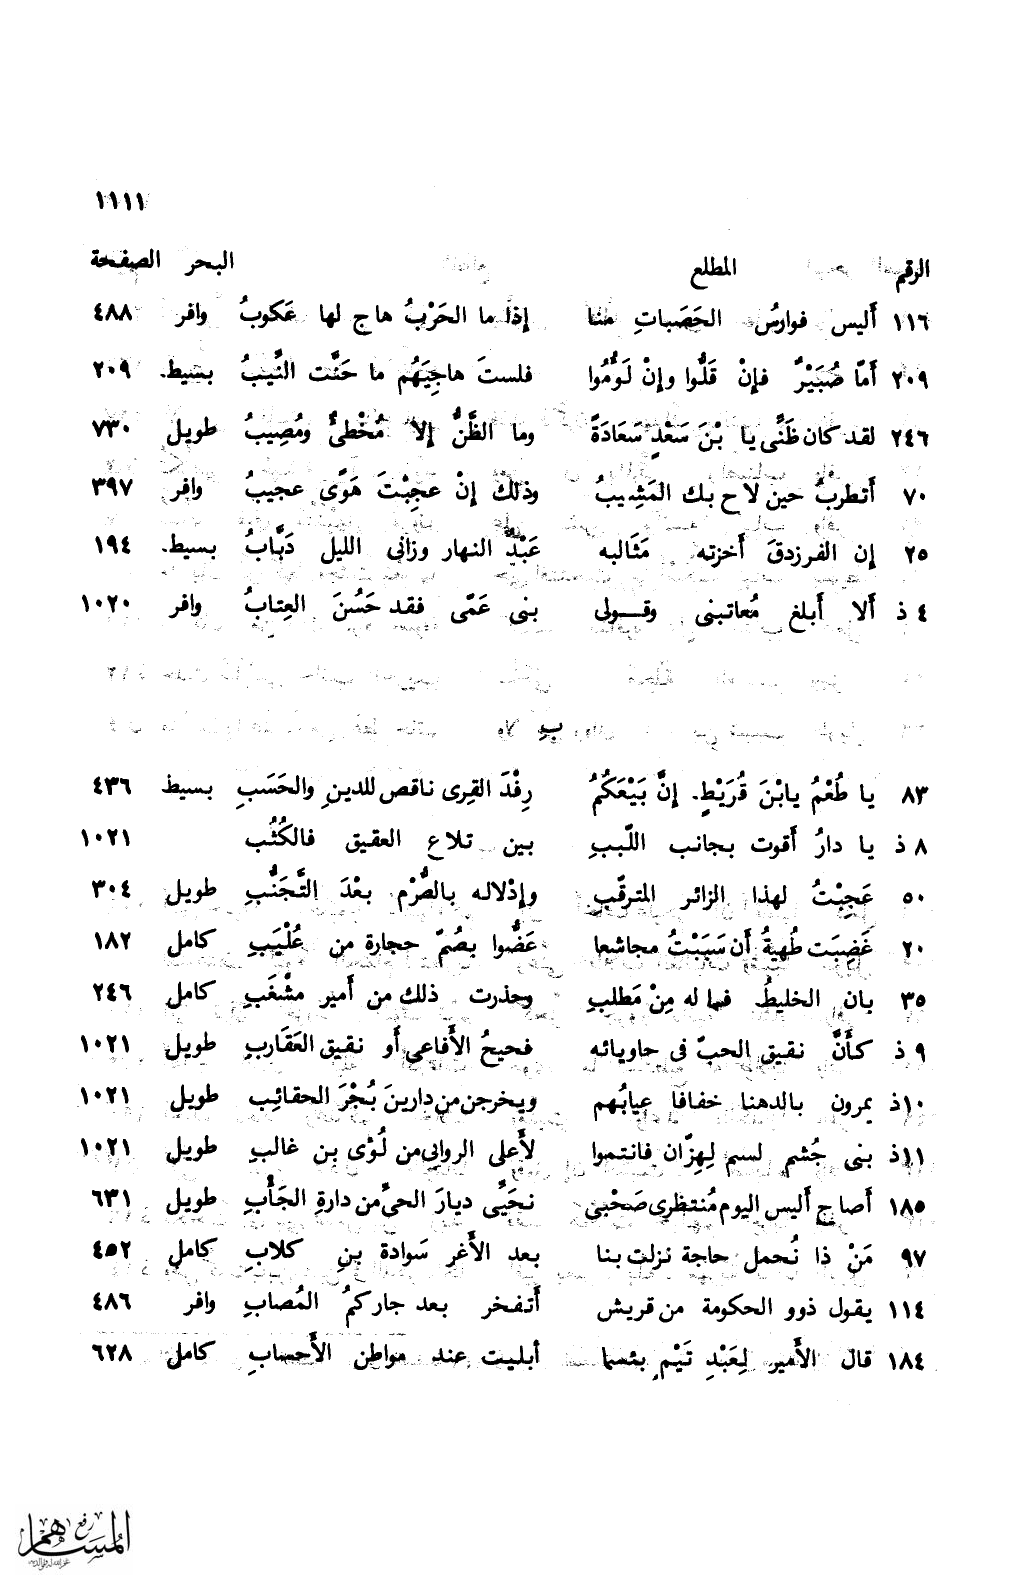 ١١١١
الرقم المطلع البحر الصفحة
١١٦ أَليس فوارسُ الحَصَباتِ منّا إذا ما الحَرْبُ هاج لها عَكوبُ وافر ٤٨٨
٢٠٩ أَمّا صُبَيْرٌ فإنْ قَلُّوا وإنْ لَوُمُوا فلستَ هاجِيَهُم ما حَنَّت النِّيبُ بسيط ٢٠٩
٢٤٦ لقد كان ظَنِّى يا بْنَ سَعْدٍ سَعَادَةً وما الظَّنُّ إلا مُخْطِئٌ ومُصِيبُ طويل ٧٣٠
٧٠ أَتطربُ حين لاح بك المَشِيبُ وذلك إنْ عجِبْتَ هَوًى عجيبُ وافر ٣٩٧
٢٥ إن الفرزدقَ أَخزته مَثَالبه عَبْدُ النهار وزانى الليل دَبَّابُ بسيط ١٩٤
٤ ذ أَلا أَبلغ مُعاتبتى وقولى بنى عَمّى فقد حَسُنَ العِتابُ وافر ١٠٢٠
بِ
٨٣ يا طُعْمُ يابْنَ قُرَيْطٍ إنَّ بَيْعَكُمُ رِفْدَ القِرى ناقص للدينِ والحَسَبِ بسيط ٤٣٦
٨ ذ يا دارُ أَقوت بجانب اللَّببِ بين تلاع العقيق فالكُثُب ١٠٢١
٥٠ عَجِبْتُ لهذا الزائر المترقّبِ وإدْلاله بالصُّرْم بعْدَ التَّجَنُّبِ طويل ٣٠٤
٢٠ غَضِبَت طُهيةُ أَن سَبَبْتُ مجاشعا عَضُّوا بصُمّ حجارة من عُلْيَبِ كامل ١٨٢
٣٥ بان الخليطُ فما له مِنْ مَطلبِ وحذرت ذلك من أَمير مشْغَبِ كامل ٢٤٦
٩ ذ كأَنَّ نقيق الحبّ فى حاويائه فحيحُ الأَفاعى أَو نقيق العَقَاربِ طويل ١٠٢١
١٠ذ يمرون بالدهنا خفافا عيابُهم ويخرجن من دارينَ بُجْرَ الحقائِب طويل ١٠٢١
١١ذ بنى جُشم لستم لِهِزَّان فانتموا لأَعلى الروابى من لُوْى بن غالبِ طويل ١٠٢١
١٨٥ أَصاحِ أَليس اليوم مُنتظرى صَحْبى نحَيِّى ديارَ الحىِّ من دارةِ الجَأْبِ طويل ٦٣١
٩٧ مَنْ ذا نُحمل حاجة نزلت بنا بعد الأَغر سَوادة بنِ كلابِ كامل ٤٥٢
١١٤ يقول ذوو الحكومة من قريش أَتفخر بعد جاركمُ المُصابِ وافر ٤٨٦
١٨٤ قال الأَمير لِعَبْدِ تَيْمٍ بئسما أبليت عند مواطن الأَحسابِ كامل ٦٢٨
رفع
المساهم